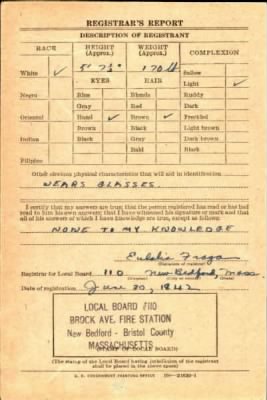 REGISTRAR'S REPORT
DESCRIPTION OF REGISTRANT
RACE HEIGHT (Approx.) WEIGHT (Approx.) COMPLEXION
White ✓ 5' 7½" 170 lb Sallow
EYES HAIR Light ✓
Negro Blue Blonde Ruddy
Gray Red Dark
Oriental Hazel ✓ Brown ✓ Freckled
Brown Black Light brown
Indian Black Gray Dark brown
Bald Black
Filipino
Other obvious physical characteristics that will aid in identification
WEARS GLASSES.
I certify that my answers are true; that the person registered has read or has had
read to him his own answers; that I have witnessed his signature or mark and that
all of his answers of which I have knowledge are true, except as follows:
NONE TO MY KNOWLEDGE
Eulalia
(Signature of registrar)
Registrar for Local Board 110 New Bedford, Mass
Date of registration June 30, 1942
LOCAL BOARD #110
BROCK AVE. FIRE STATION
New Bedford - Bristol County
MASSACHUSETTS
(STAMP OF LOCAL BOARD)
(The stamp of the Local Board having jurisdiction of the registrant
shall be placed in the above space)
U. S. GOVERNMENT PRINTING OFFICE